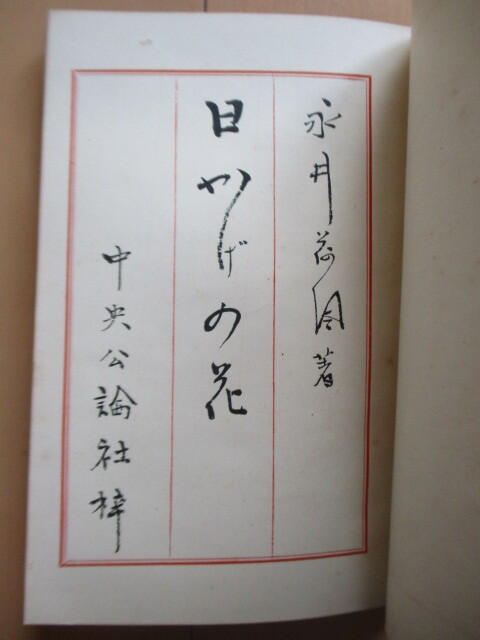 永井荷風著
日かげの花
中央公論社梓